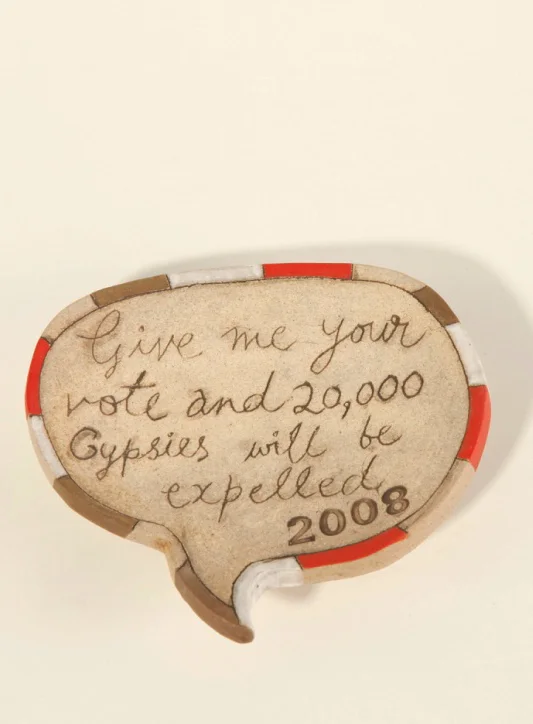 Give me your
vote and 20,000
Gypsies will be
expelled
2008